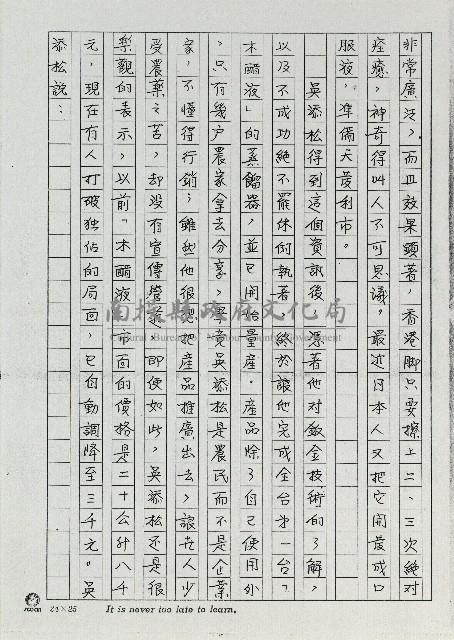 非常廣泛，而且效果顯著，香港腳只要擦上二、三次絕對
痊癒，神奇得叫人不可思議。最近日本人又把它開發成口
服液，準備大發利市。
吳添松得到這個資訊後，憑著他對鈑金技術的了解，
以及不成功絕不罷休的執著，終於讓他完成全台第一台「
木醋液」的蒸餾器，並已開始量產。產品除了自己使用外
，只有幾戶農家拿去分享，畢竟吳添松是農民而不是企業
家，不懂得行銷；雖然他很想把產品推廣出去，讓世人少
受農藥之苦，却没有宣傳管道，即便如此，吳添松还是很
樂觀的表示，以前「木醋液」市面的價格是二十公升八千
元，現在有人打破独佔的局面，已自動調降至三千元。吳
添松說：
南投縣政府文化局
Cultural Bureau of Nantou County Government
SWAN 24×25 It is never too late to learn.